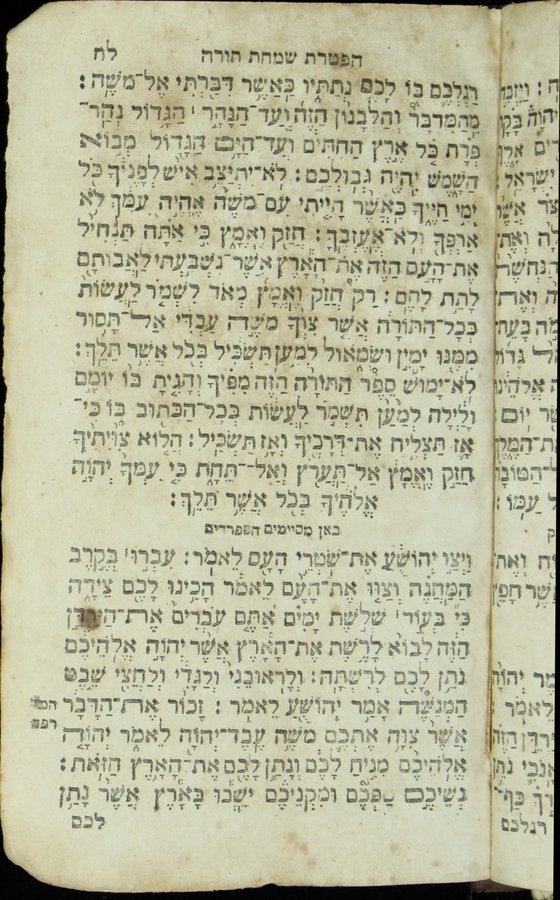 הפטרת שמחת תורה
לח
רַגְלְכֶם בּוֹ לָכֶם נְתַתִּיו כַּאֲשֶׁר דִּבַּרְתִּי אֶל־מֹשֶׁה:
מֵהַמִּדְבָּר וְהַלְּבָנוֹן הַזֶּה וְעַד־הַנָּהָר הַגָּדוֹל נְהַר־
פְּרָת כֹּל אֶרֶץ הַחִתִּים וְעַד־הַיָּם הַגָּדוֹל מְבוֹא
הַשָּׁמֶשׁ יִהְיֶה גְּבוּלְכֶם: לֹא־יִתְיַצֵּב אִישׁ לְפָנֶיךָ כֹּל
יְמֵי חַיֶּיךָ כַּאֲשֶׁר הָיִיתִי עִם־מֹשֶׁה אֶהְיֶה עִמָּךְ לֹא
אַרְפְּךָ וְלֹא־אֶעֶזְבֶךָּ: חֲזַק וֶאֱמָץ כִּי אַתָּה תַּנְחִיל
אֶת־הָעָם הַזֶּה אֶת־הָאָרֶץ אֲשֶׁר־נִשְׁבַּעְתִּי לַאֲבוֹתָם
לָתֵת לָהֶם: רַק חֲזַק וֶאֱמַץ מְאֹד לִשְׁמֹר לַעֲשׂוֹת
כְּכָל־הַתּוֹרָה אֲשֶׁר צִוְּךָ מֹשֶׁה עַבְדִּי אַל־תָּסוּר
מִמֶּנּוּ יָמִין וּשְׂמֹאול לְמַעַן תַּשְׂכִּיל בְּכֹל אֲשֶׁר תֵּלֵךְ:
לֹא־יָמוּשׁ סֵפֶר הַתּוֹרָה הַזֶּה מִפִּיךָ וְהָגִיתָ בּוֹ יוֹמָם
וָלַיְלָה לְמַעַן תִּשְׁמֹר לַעֲשׂוֹת כְּכָל־הַכָּתוּב בּוֹ כִּי־
אָז תַּצְלִיחַ אֶת־דְּרָכֶיךָ וְאָז תַּשְׂכִּיל: הֲלוֹא צִוִּיתִיךָ
חֲזַק וֶאֱמָץ אַל־תַּעֲרֹץ וְאַל־תֵּחָת כִּי עִמְּךָ יְהוָה
אֱלֹהֶיךָ בְּכֹל אֲשֶׁר תֵּלֵךְ:
כאן מסיימים הספרדים
וַיְצַו יְהוֹשֻׁעַ אֶת־שֹׁטְרֵי הָעָם לֵאמֹר: עִבְרוּ בְּקֶרֶב
הַמַּחֲנֶה וְצַוּוּ אֶת־הָעָם לֵאמֹר הָכִינוּ לָכֶם צֵידָה
כִּי בְּעוֹד שְׁלֹשֶׁת יָמִים אַתֶּם עֹבְרִים אֶת־הַיַּרְדֵּן
הַזֶּה לָבוֹא לָרֶשֶׁת אֶת־הָאָרֶץ אֲשֶׁר יְהוָה אֱלֹהֵיכֶם
נֹתֵן לָכֶם לְרִשְׁתָּהּ: וְלָראוּבֵנִי וְלַגָּדִי וְלַחֲצִי שֵׁבֶט
הַמְנַשֶּׁה אָמַר יְהוֹשֻׁעַ לֵאמֹר: זָכוֹר אֶת־הַדָּבָר
אֲשֶׁר צִוָּה אֶתְכֶם מֹשֶׁה עֶבֶד־יְהוָה לֵאמֹר יְהוָה
אֱלֹהֵיכֶם מֵנִיחַ לָכֶם וְנָתַן לָכֶם אֶת־הָאָרֶץ הַזֹּאת:
נְשֵׁיכֶם טַפְּכֶם וּמִקְנֵיכֶם יֵשְׁבוּ בָּאָרֶץ אֲשֶׁר נָתַן
לכם